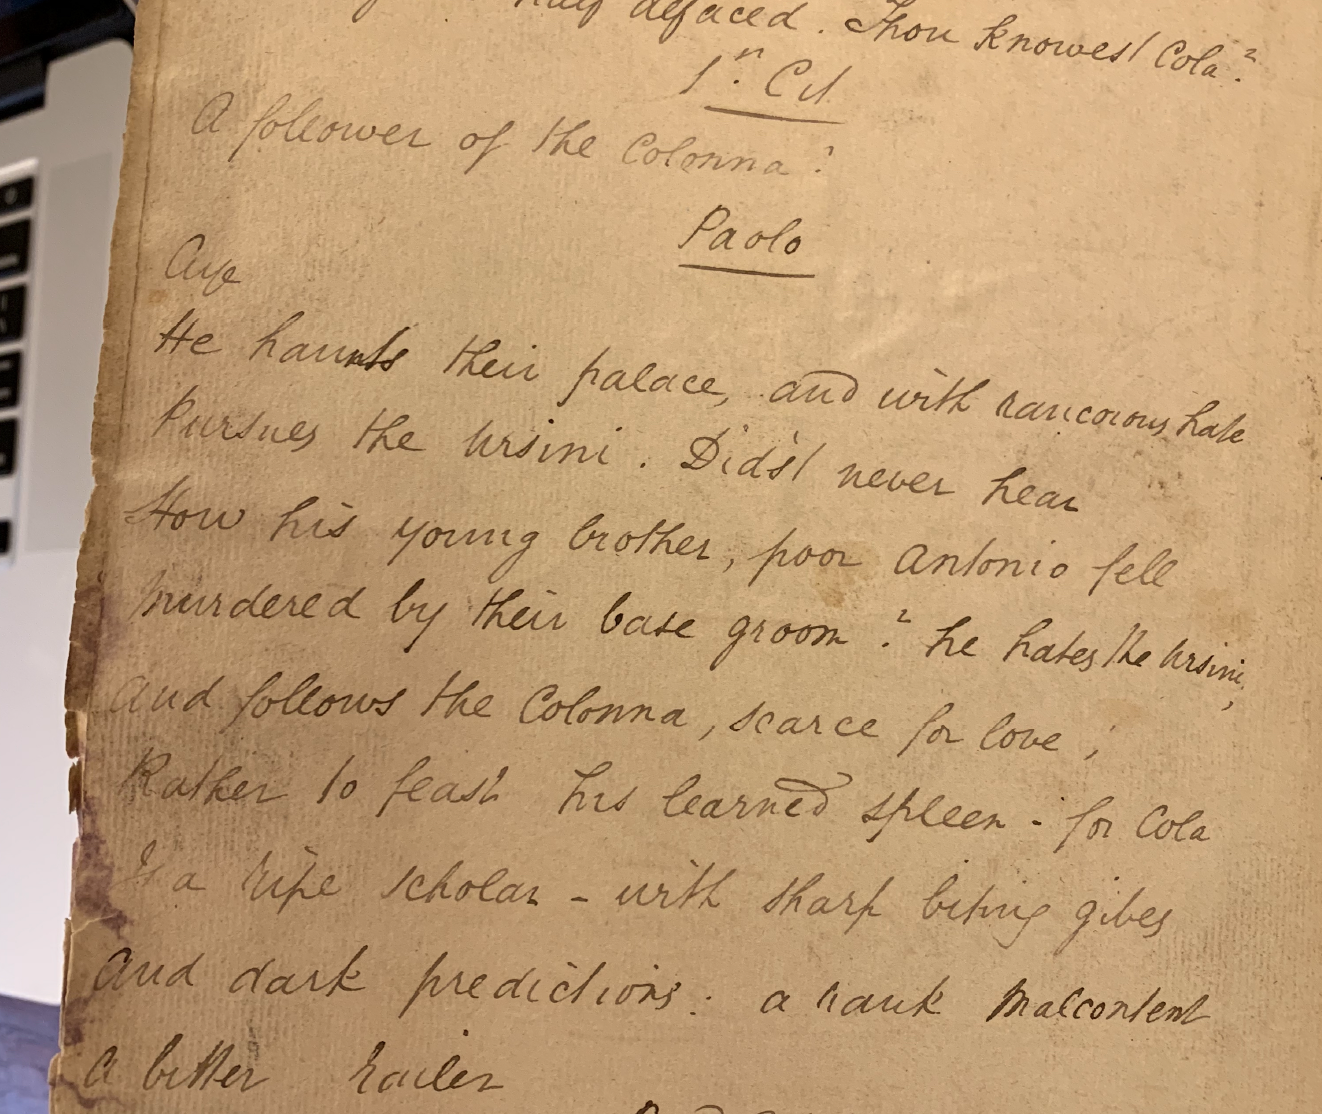 half defaced. Thou knowest Cola?
1st. Cit.
A follower of the Colonna?
Paolo
Aye
He haunts their palace, and with rancorous hate
Pursues the Ursini. Did'st never hear
How his young brother, poor Antonio fell
Murdered by their base groom? he hates the Ursini,
And follows the Colonna, scarce for love;
Rather to feast his learned spleen - for Cola
Is a ripe scholar - with sharp biting gibes
And dark predictions: a rank Malcontent
A bitter railer